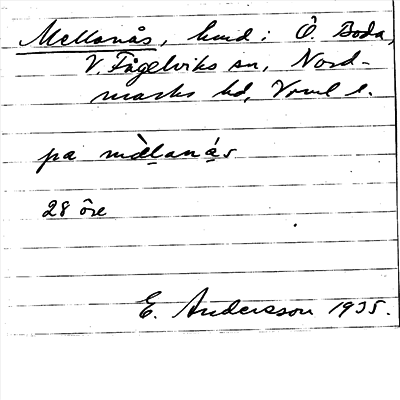 Mellanås, hmd: Ö. Boda,
V. Fågelviks sn, Nord-
marks hd, Vrml l.
pa mèlanás
28 öre
E. Andersson 1935.